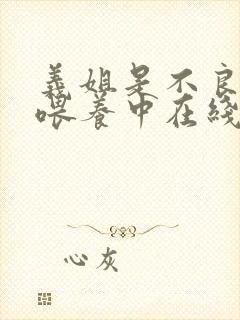 義姐是不良
喂養中在綫
心灰